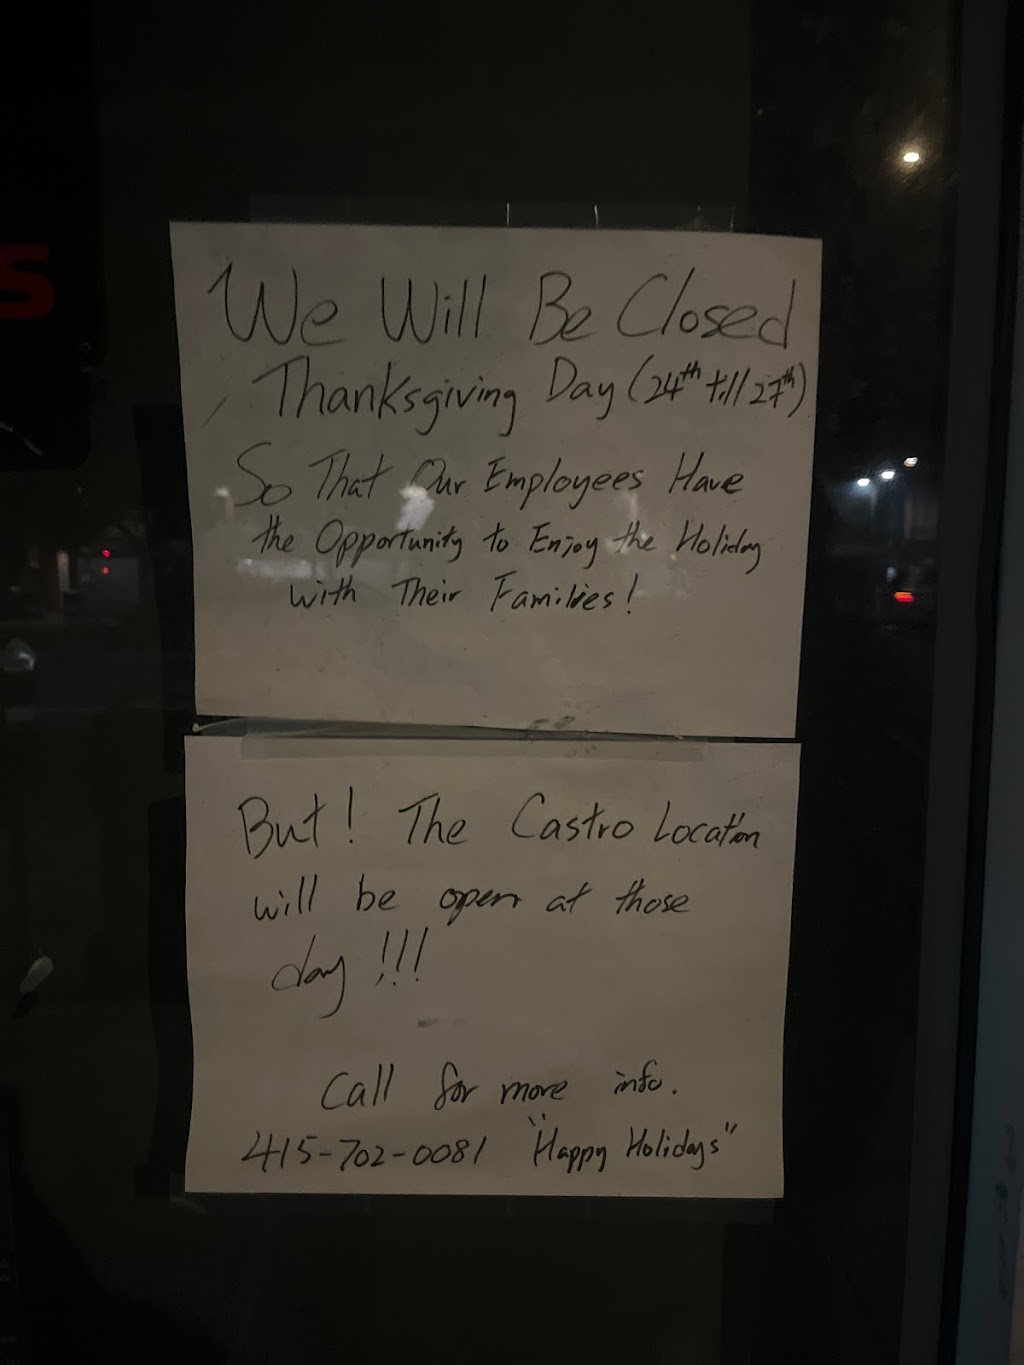 We Will Be Closed
Thanksgiving Day (24th till 27th)
So That Our Employees Have
the Opportunity to Enjoy the Holiday
with Their Families!
But! The Castro Location
will be open at those
day!!!
Call for more info.
415-702-0081 "Happy Holidays"
S